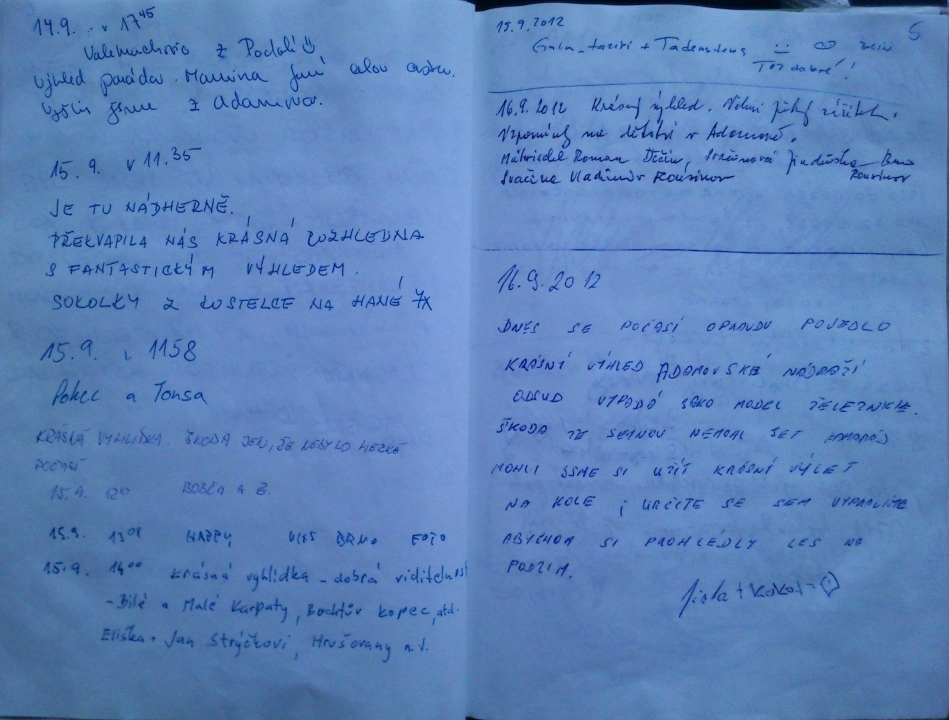 14.9. v 17⁴⁵
z Podolí
výhled paráda. Mamina jsou celou cestu.
Vyšli jsme z Adamova.
15.9. v 11.35
JE TU NÁDHERNĚ.
PŘEKVAPILA NÁS KRÁSNÁ ROZHLEDNA
S FANTASTICKÝM VÝHLEDEM.
SOKOLKY Z KOSTELCE NA HANÉ 7X
15.9. 1158
a Tonsa
KRÁSNÁ VYHLÍDKA. ŠKODA JEN, ŽE NEBYLO HEZKÉ
POČASÍ
15.9.
15.9. 13⁰⁸ HAPPY BRNO FOTO
15.9. 14⁰⁰ krásná vyhlídka - dobrá viditelnost
- Bílé a Malé Karpaty, kopec, atd.
Eliška + Jan Strýčkovi, Hrušovany n. J.
5
15.9.2012
Též dobré!
16.9.2012 Krásný výhled. Velmi pěkný zážitek.
Vzpomínky na dětství v Adamově.
Roman Děčín, Jindřiška Brno
Svačina Vladimír Rousínov Rousínov
16.9.2012
DNES SE POČASÍ OPRAVDU POVEDLO
KRÁSNÍ VÝHLED ADAMOVSKÉ NÁDRAŽÍ
ODSUD VYPADÁ JAKO MODEL ŽELEZNICE.
ŠKODA ŽE SEMNOU NEMOHL JET
MOHLI JSME SI UŽÍT KRÁSNÍ VÝLET
NA KOLE i URČITE SE SEM VYPRAVÍME
ABYCHOM SI PROHLÉDLY LES NA
PODZIM.